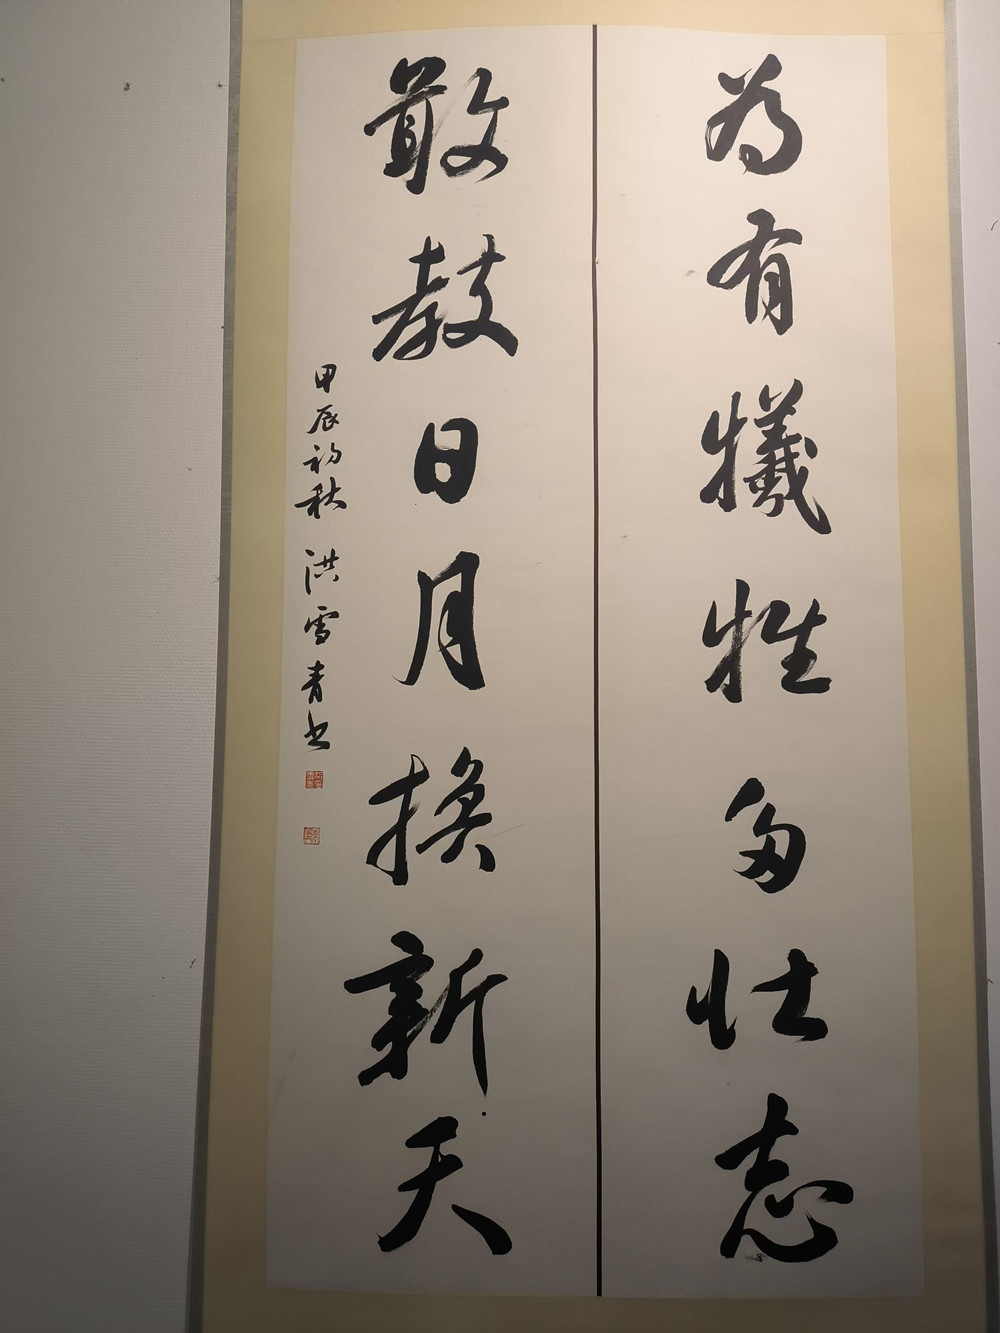 為有犧牲多壮志
敢教日月換新天
甲辰初秋 洪雪青书